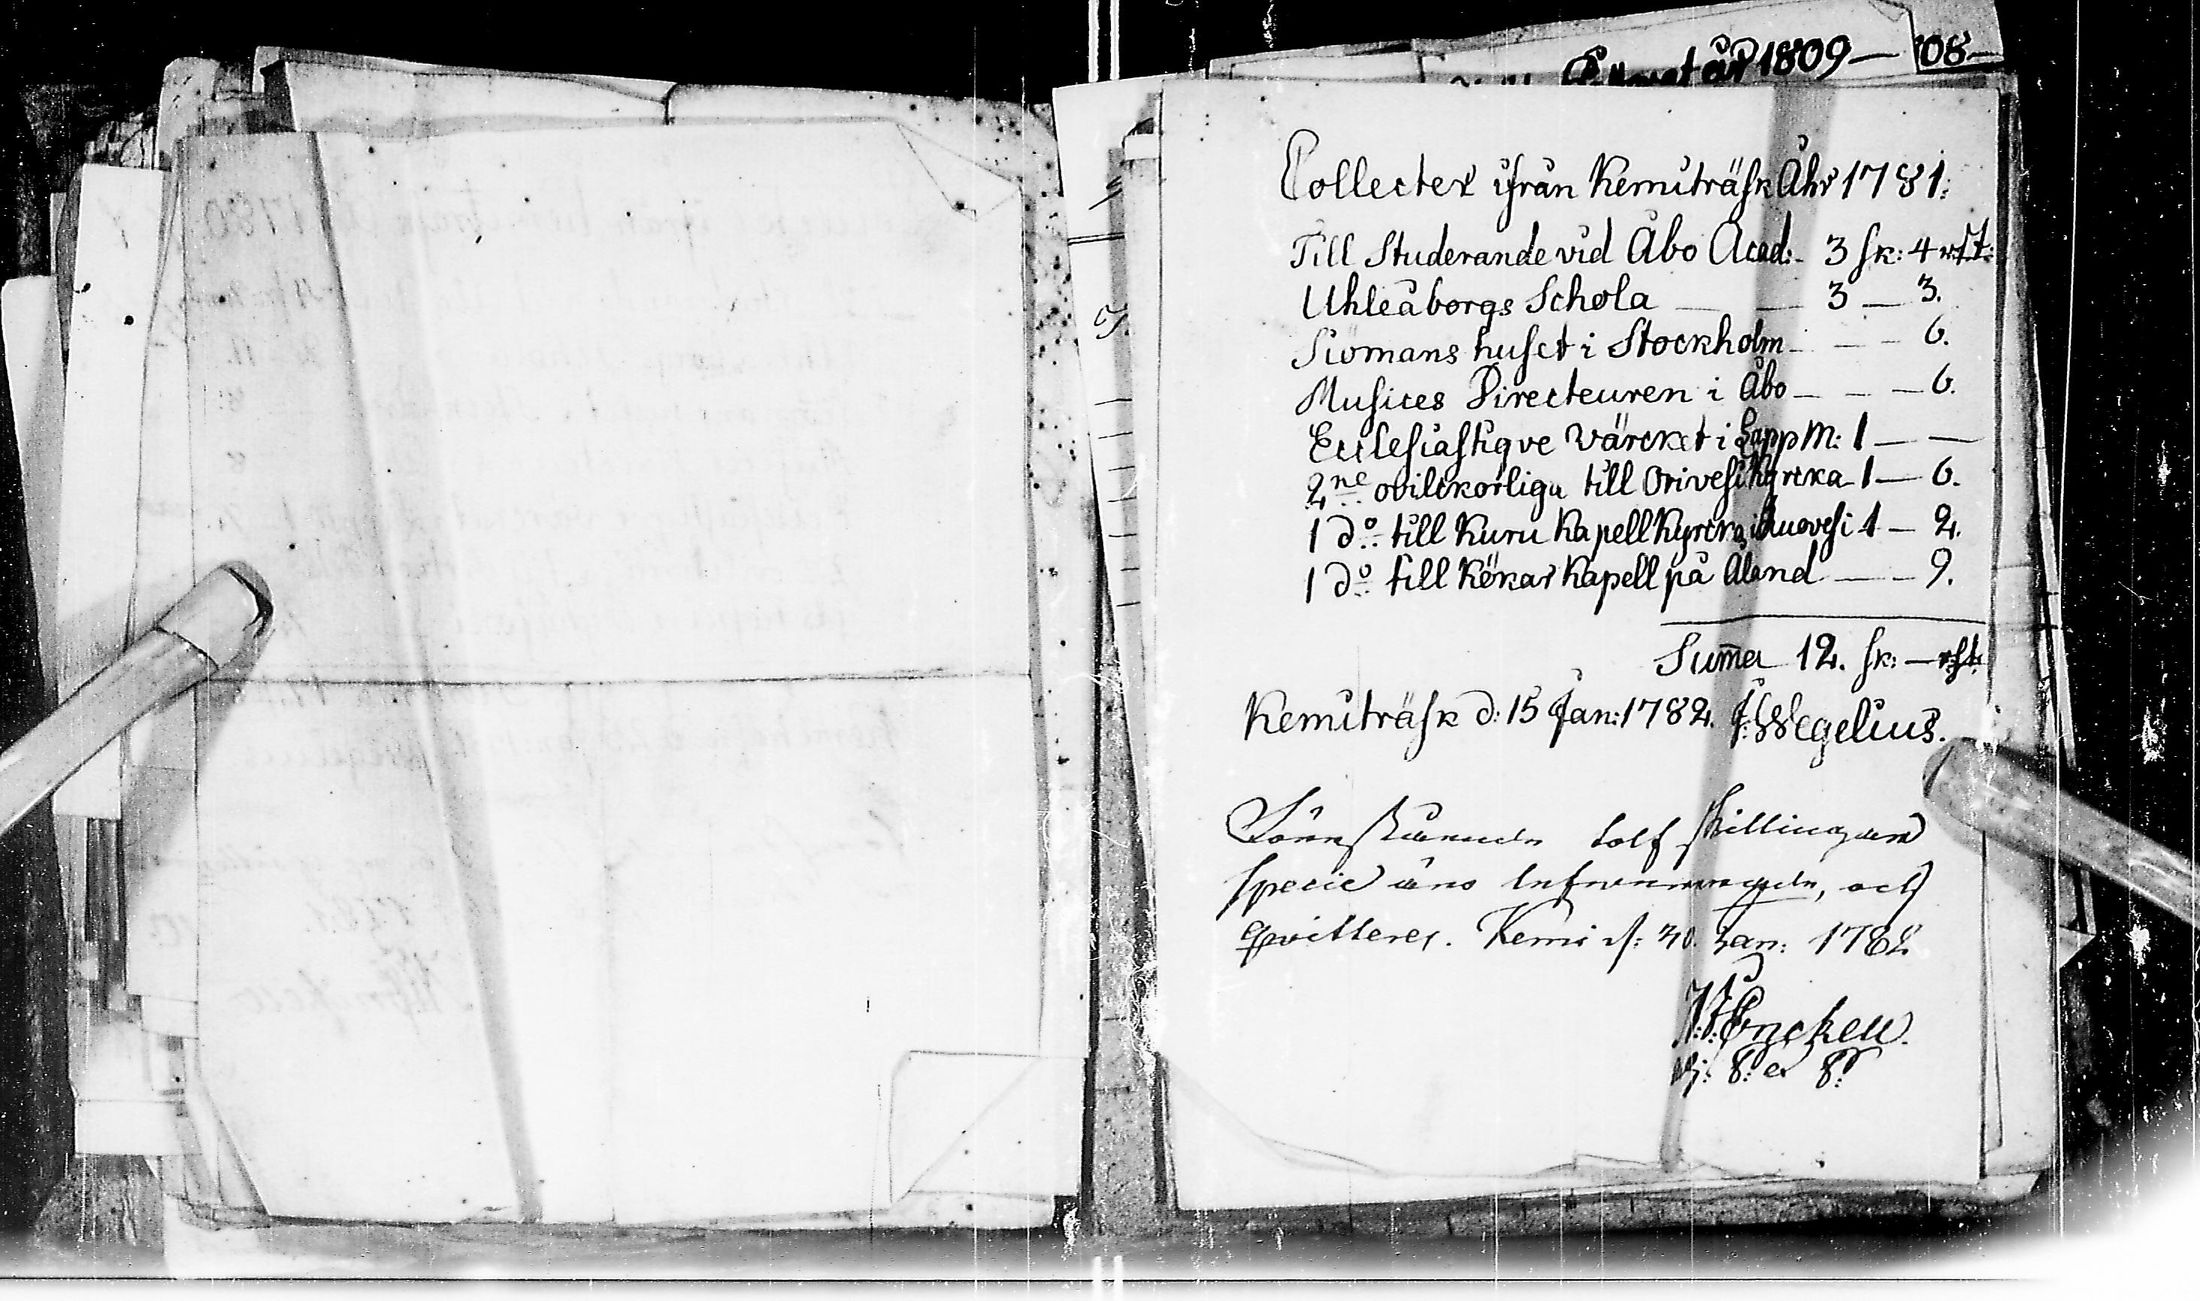 år 1809 — 08 —
Collecter ifrån Kemiträsk Åhr 1781:
Till Studerande vid Åbo Acad: 3 sk: 4 rst:
Uhleåborgs Schola — — 3 — 3.
Siömans huset i Stockholm — — — 6.
Musices Directeuren i Åbo — — — 6.
Ecclesiastiqve Värcket i LappM: 1 — —
2ne ovilckorliga till Orivesi Kyrcka 1 — 6.
1 do till Kuru Kapell Kyrcka i Ruovesi 1 — 2.
1 do till Kökar Kapell på Åland — — 9.
Summa 12. sk: — rst.
Kemiträsk d: 15 Jan: 1782. J: Wegelius.
tolf skillingar
specie och
qvitteres. Kemi d: 30. Jan: 1782
Enckell.